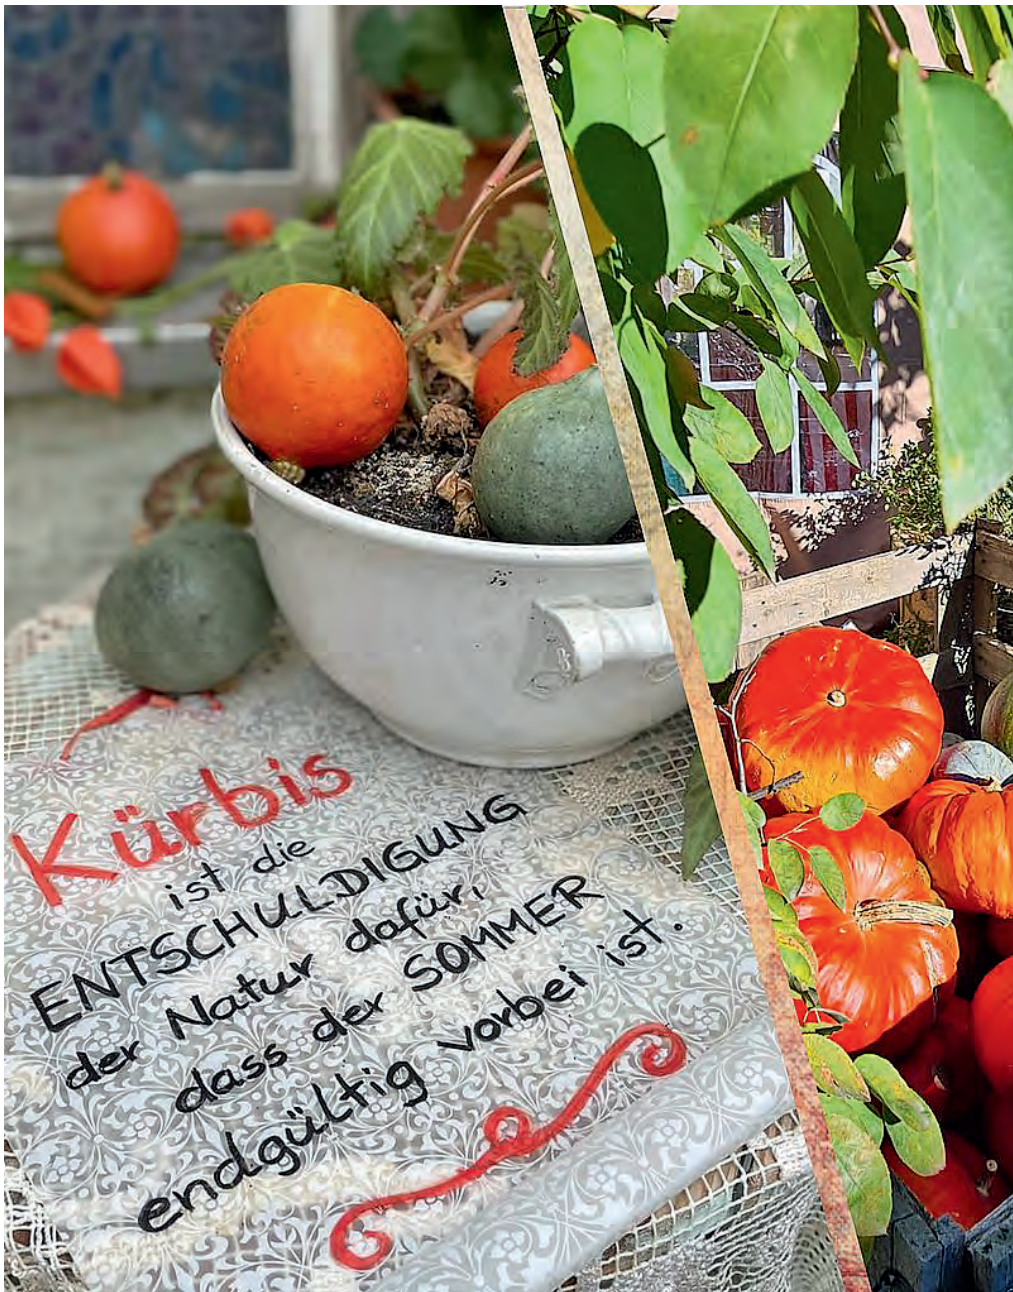 Kürbis
ist die
ENTSCHULDIGUNG
der Natur dafür,
dass der SOMMER
endgültig vorbei ist.